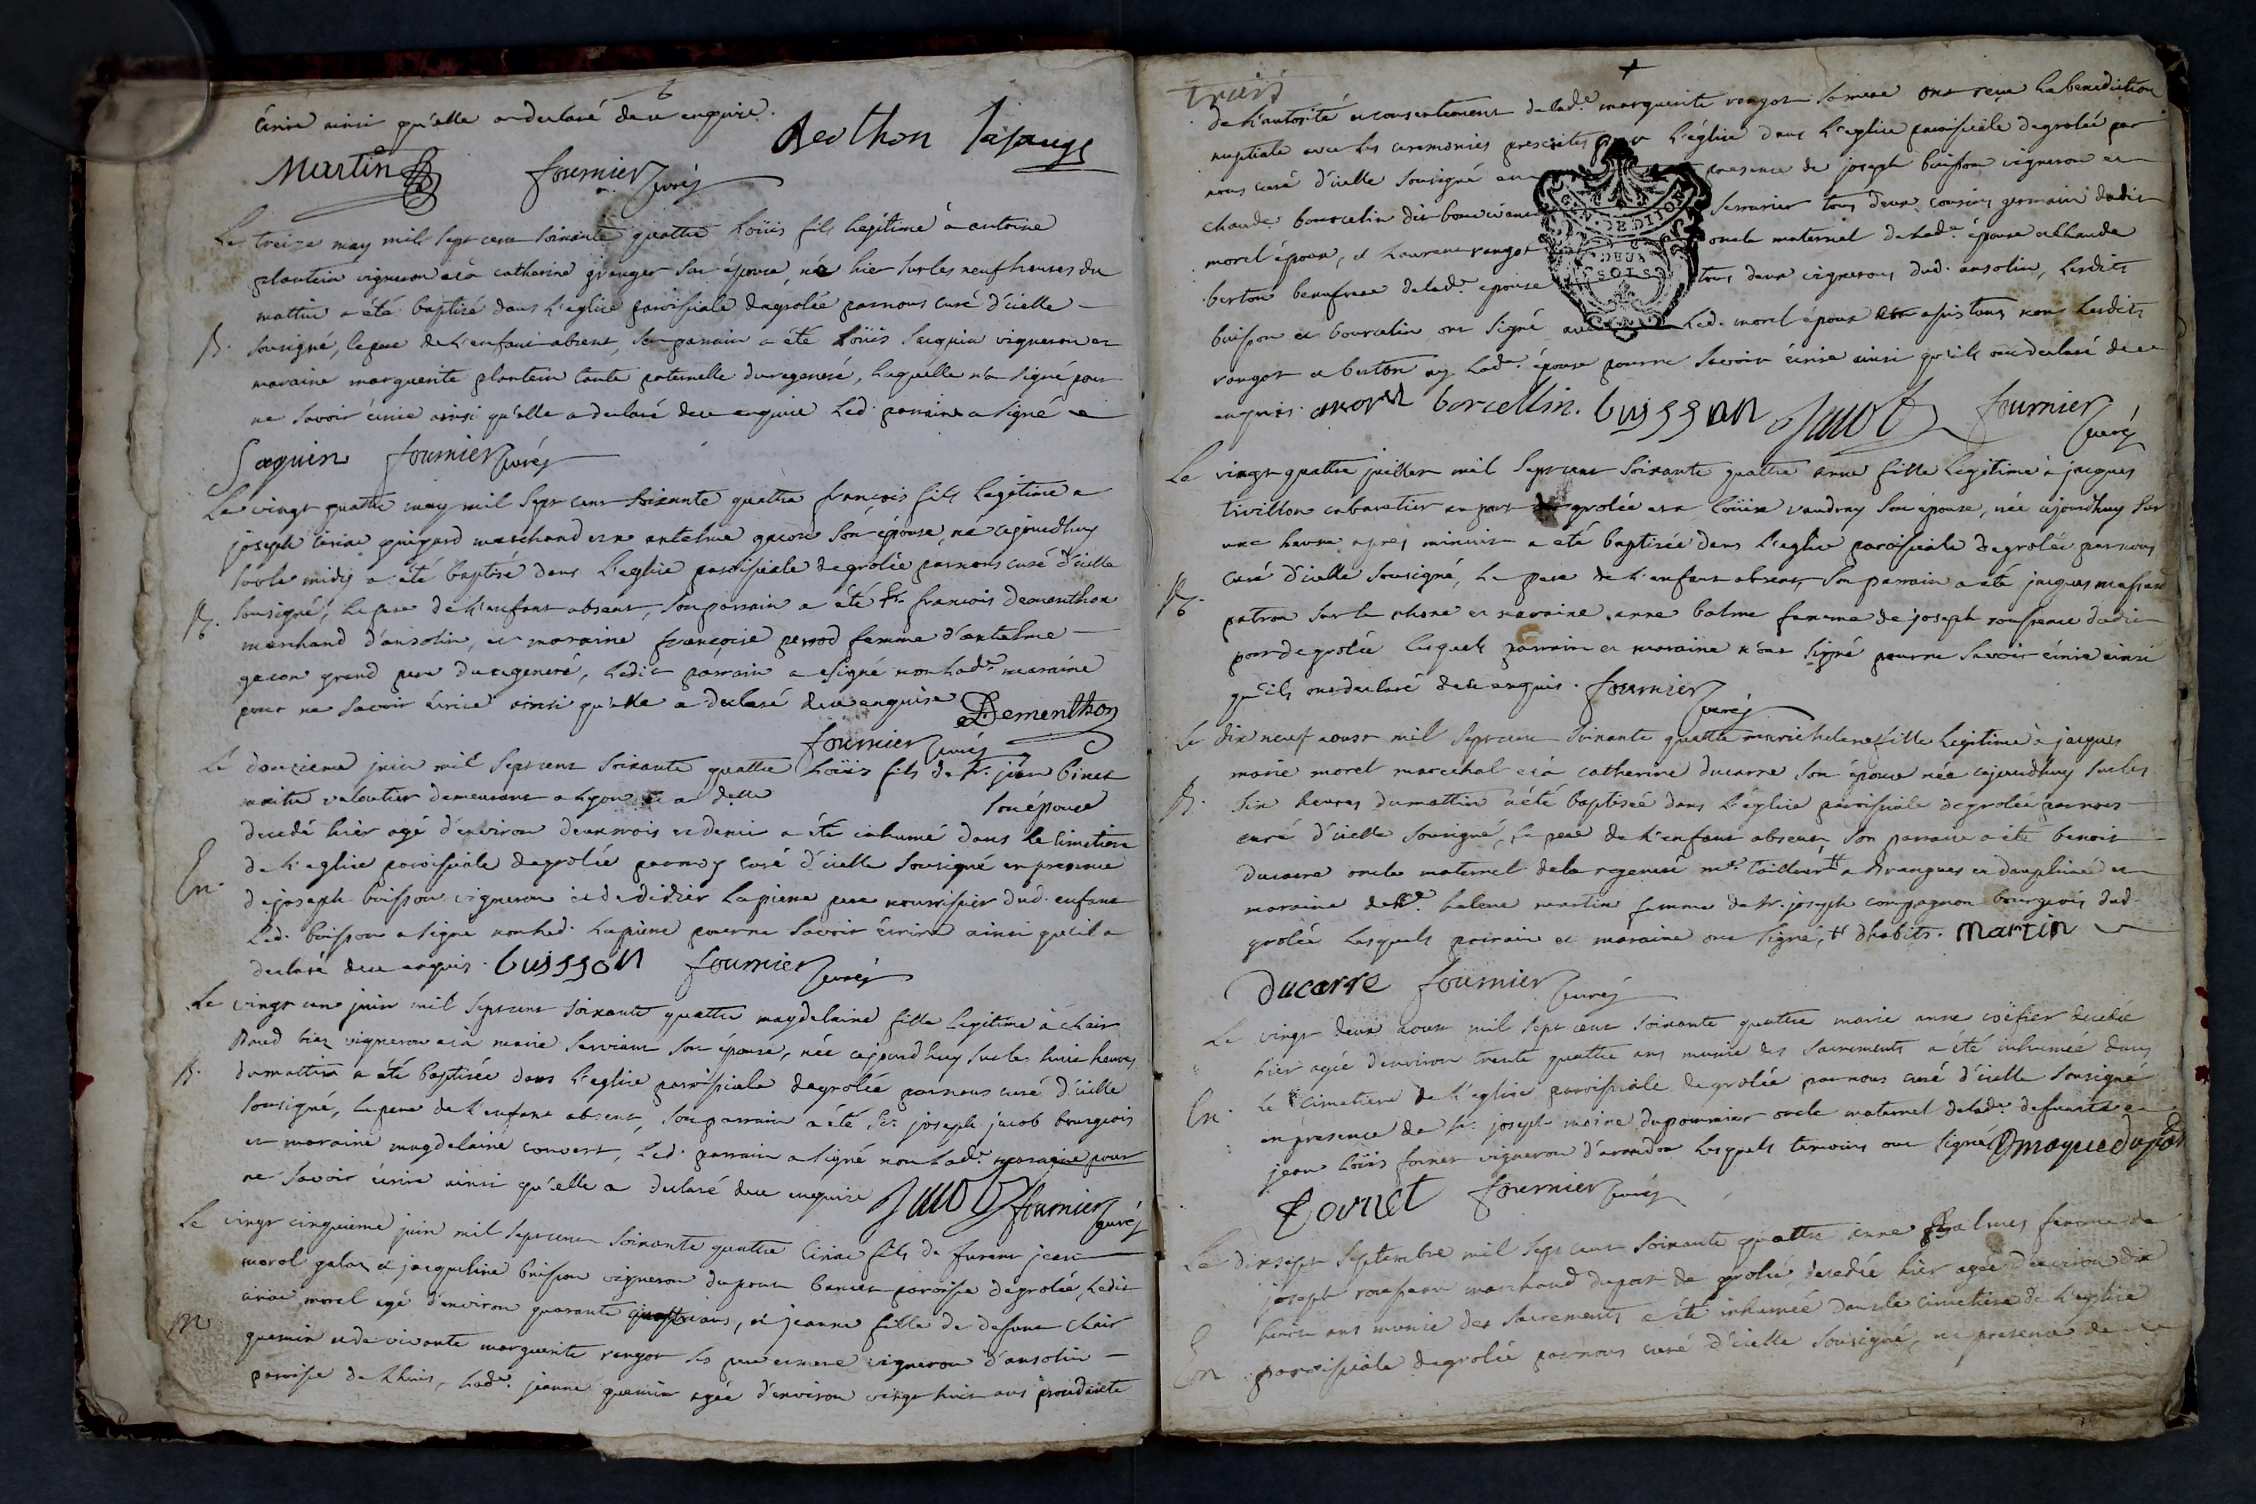 écrire ainsi qu'elle a declaré de ce enquise.
Martin fournier curé Berthon
Le treize may mil sept cent soixante quattre Loüis fils legitime à antoine
plantin vigneron et à catherine granger son épouse, né hier sur les neuf heures du
mattin a été baptisé dans l'eglise paroissiale de grolée par nous curé d'icelle
B. sousigné, le pere de l'enfant absent, son parrain a été Loüis seguin vigneron et
maraine marguerite plantin tante paternelle du regeneré, laquelle n'a signé pour
ne savoir écrire ainsi qu'elle a declaré de ce enquise led. parrain a signé
Seguin fournier curé
Le vingt quattre may mil sept cent soixante quattre françois fils legitime a
joseph marchand et a antelme gacon son épouse, né cejourdhuy
sur le midy a été baptisé dans l'eglise paroissiale de grolée par nous curé d'icelle
B. sousigné, le pere de l'enfant absent, son parrain a été Sr. francois dementhon
marchand d'ansolin, et maraine françoise perrod femme d'antelme
gacon grand pere du regeneré, ledit parrain a signé non lade. maraine
pour ne savoir écrire ainsi qu'elle a declaré de ce enquise Dementhon
fournier curé
Le douzieme juin mil sept cent soixante quattre Loüis fils de Sr. jean binet
maitre demeurant a Lyon et a delle son épouse
decedé hier agé d'environ deux mois et demi a été inhumé dans le cimetiere
de l'eglise paroissiale de grolée par nous curé d'icelle sousigné en presence
En. de joseph buisson vigneron et de didier Lapierre pere nourrissier dud. enfant
Led. buisson a signé non led. Lapierre pour ne savoir écrire ainsi qu'il a
declaré de ce enquis. buisson fournier curé
Le vingt un juin mil sept cent soixante quattre magdelaine fille legitime à clair
vigneron et à marie servient son épouse, née cejourdhuy sur les huit heures
B. du mattin a été baptisée dans l'eglise paroissiale de grolée par nous curé d'icelle
sousigné, le pere de l'enfant absent, son parrain a été Sr. joseph jacob bourgeois
et maraine magdelaine convert, led. parrain a signé non lade. maraine pour
ne savoir écrire ainsi qu'elle a declaré de ce enquise Jacob fournier curé
Le vingt cinquieme juin mil sept cent soixante quattre Ciriac fils de furent jean
morel galaz et jacqueline buisson vigneron du port paroisse de grolée ledit
ciriac morel agé d'environ quarante quattre ans, et jeanne fille de defunt clair
M guemin et de vivante marguerite rongot ses pere et mere vigneron d'ansolin
paroisse de Lhuis, lade. jeanne guemin agée d'environ vingt huit ans procedante
trois
de l'autorité et consentement de lade. marguerite rongot sa mere ont reçu la benediction
nuptiale avec les ceremonies prescrites par l'église dans l'eglise paroissiale de grolée par
nous curé d'icelle sousigné en presence de joseph buisson vigneron et
claude bourcelin dit serrurier tous deux cousins germain dudit
morel époux, et Laurent rongot oncle maternel de lade. épouse et claude
GN. DE DIJON
DEUX
SOLS
berton beaufrere de lade. epouse tous deux vignerons dud. ansolin, lesdits
buisson et bourcelin ont signé avec led. morel époux non lesdits
rongot et berton ny lade. épouse pour ne savoir écrire ainsi qu'ils ont declaré de ce
enquis. morel borcellin. buisson Jacob fournier curé
Le vingt quattre juillet mil sept cent soixante quattre anne fille legitime à jacques
trivillon cabaretier au port de grolée et a Loüise vaudray son épouse, née cejourdhuy sur
une heure apres minuit a été baptisée dans l'eglise paroissiale de grolée par nous
B. curé d'icelle sousigné, le pere de l'enfant absent, son parrain a été jacques
patron sur le rhone et maraine anne balme femme de joseph rousseau dudit
port de grolée lesquels parrain et maraine n'ont signé pour ne savoir écrire ainsi
qu'ils ont declaré de ce enquis. fournier curé
Le dix neuf aoust mil sept cent soixante quattre marie helene fille legitime à jacques
marie morel marechal et à catherine ducarre son épouse née cejourdhuy sur les
B. six heures du mattin a été baptisée dans l'église paroissiale de grolée par nous
curé d'icelle sousigné, le pere de l'enfant absent, son parrain a été benoit
ducarre oncle maternel de la regeneré me tailleur # a Brangues en dauphiné et
maraine delle. helene martin femme de Sr. joseph compagnon bourgeois dud.
grolée lesquels parrain et maraine ont signé, # d'habits. Martin
Ducarre fournier curé
Le vingt deux aout mil sept cent soixante quattre marie anne coëfier decedée
hier agée d'environ trente quattre ans munie des sacrements a été inhumée dans
En. le cimetiere de l'eglise paroissiale de grolée par nous curé d'icelle sousigné
en presence de Sr. joseph moine dupommier oncle maternel de lade. defunte et
jean Loüis fornet vigneron d'arandon lesquels temoins ont signé
fornet fournier curé
Le dix sept septembre mil sept cent soixante quattre anne balmes femme de
joseph rousseau marchand du port de grolée decedée hier agée d'environ dix
huit ans munie des sacrements a été inhumée dans le cimetiere de l'eglise
En paroissiale de grolée par nous curé d'icelle sousigné, en presence de